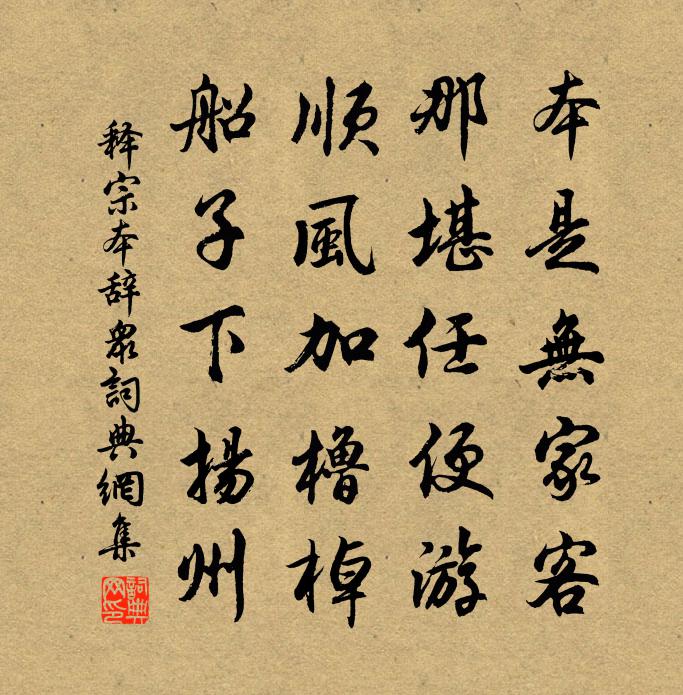 本是無家客
那堪任便游
順風加櫓棹
船子下揚州
释宗本辞衆詞典網集
詞典网印